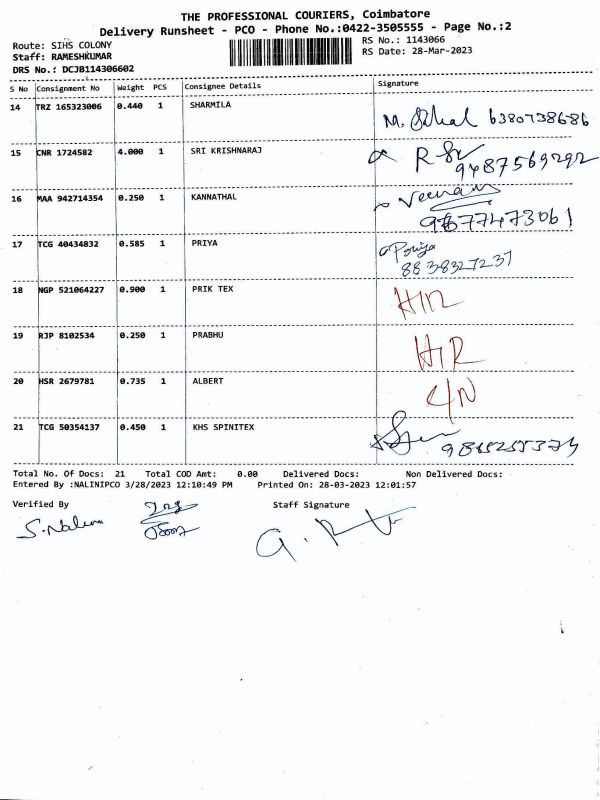 THE PROFESSIONAL COURIERS, Coimbatore
Delivery Runsheet - PCO - Phone No.:0422-3505555 - Page No.:2
Route: SIHS COLONY RS No.: 1143066
Staff: RAMESHKUMAR RS Date: 28-Mar-2023
DRS No.: DCJB114306602
S No Consignment No Weight PCS Consignee Details Signature
14 TRZ 165323006 0.440 1 SHARMILA M. 6380738686
15 CNR 1724582 4.000 1 SRI KRISHNARAJ R 9487569292
16 MAA 942714354 0.250 1 KANNATHAL
17 TCG 40434832 0.585 1 PRIYA Priya 8838327237
18 NGP 521064227 0.900 1 PRIK TEX
19 RJP 8102534 0.250 1 PRABHU
20 HSR 2679781 0.735 1 ALBERT
21 TCG 50354137 0.450 1 KHS SPINITEX
Total No. Of Docs: 21 Total COD Amt: 0.00 Delivered Docs: Non Delivered Docs:
Entered By :NALINIPCO 3/28/2023 12:10:49 PM Printed On: 28-03-2023 12:01:57
Verified By Staff Signature